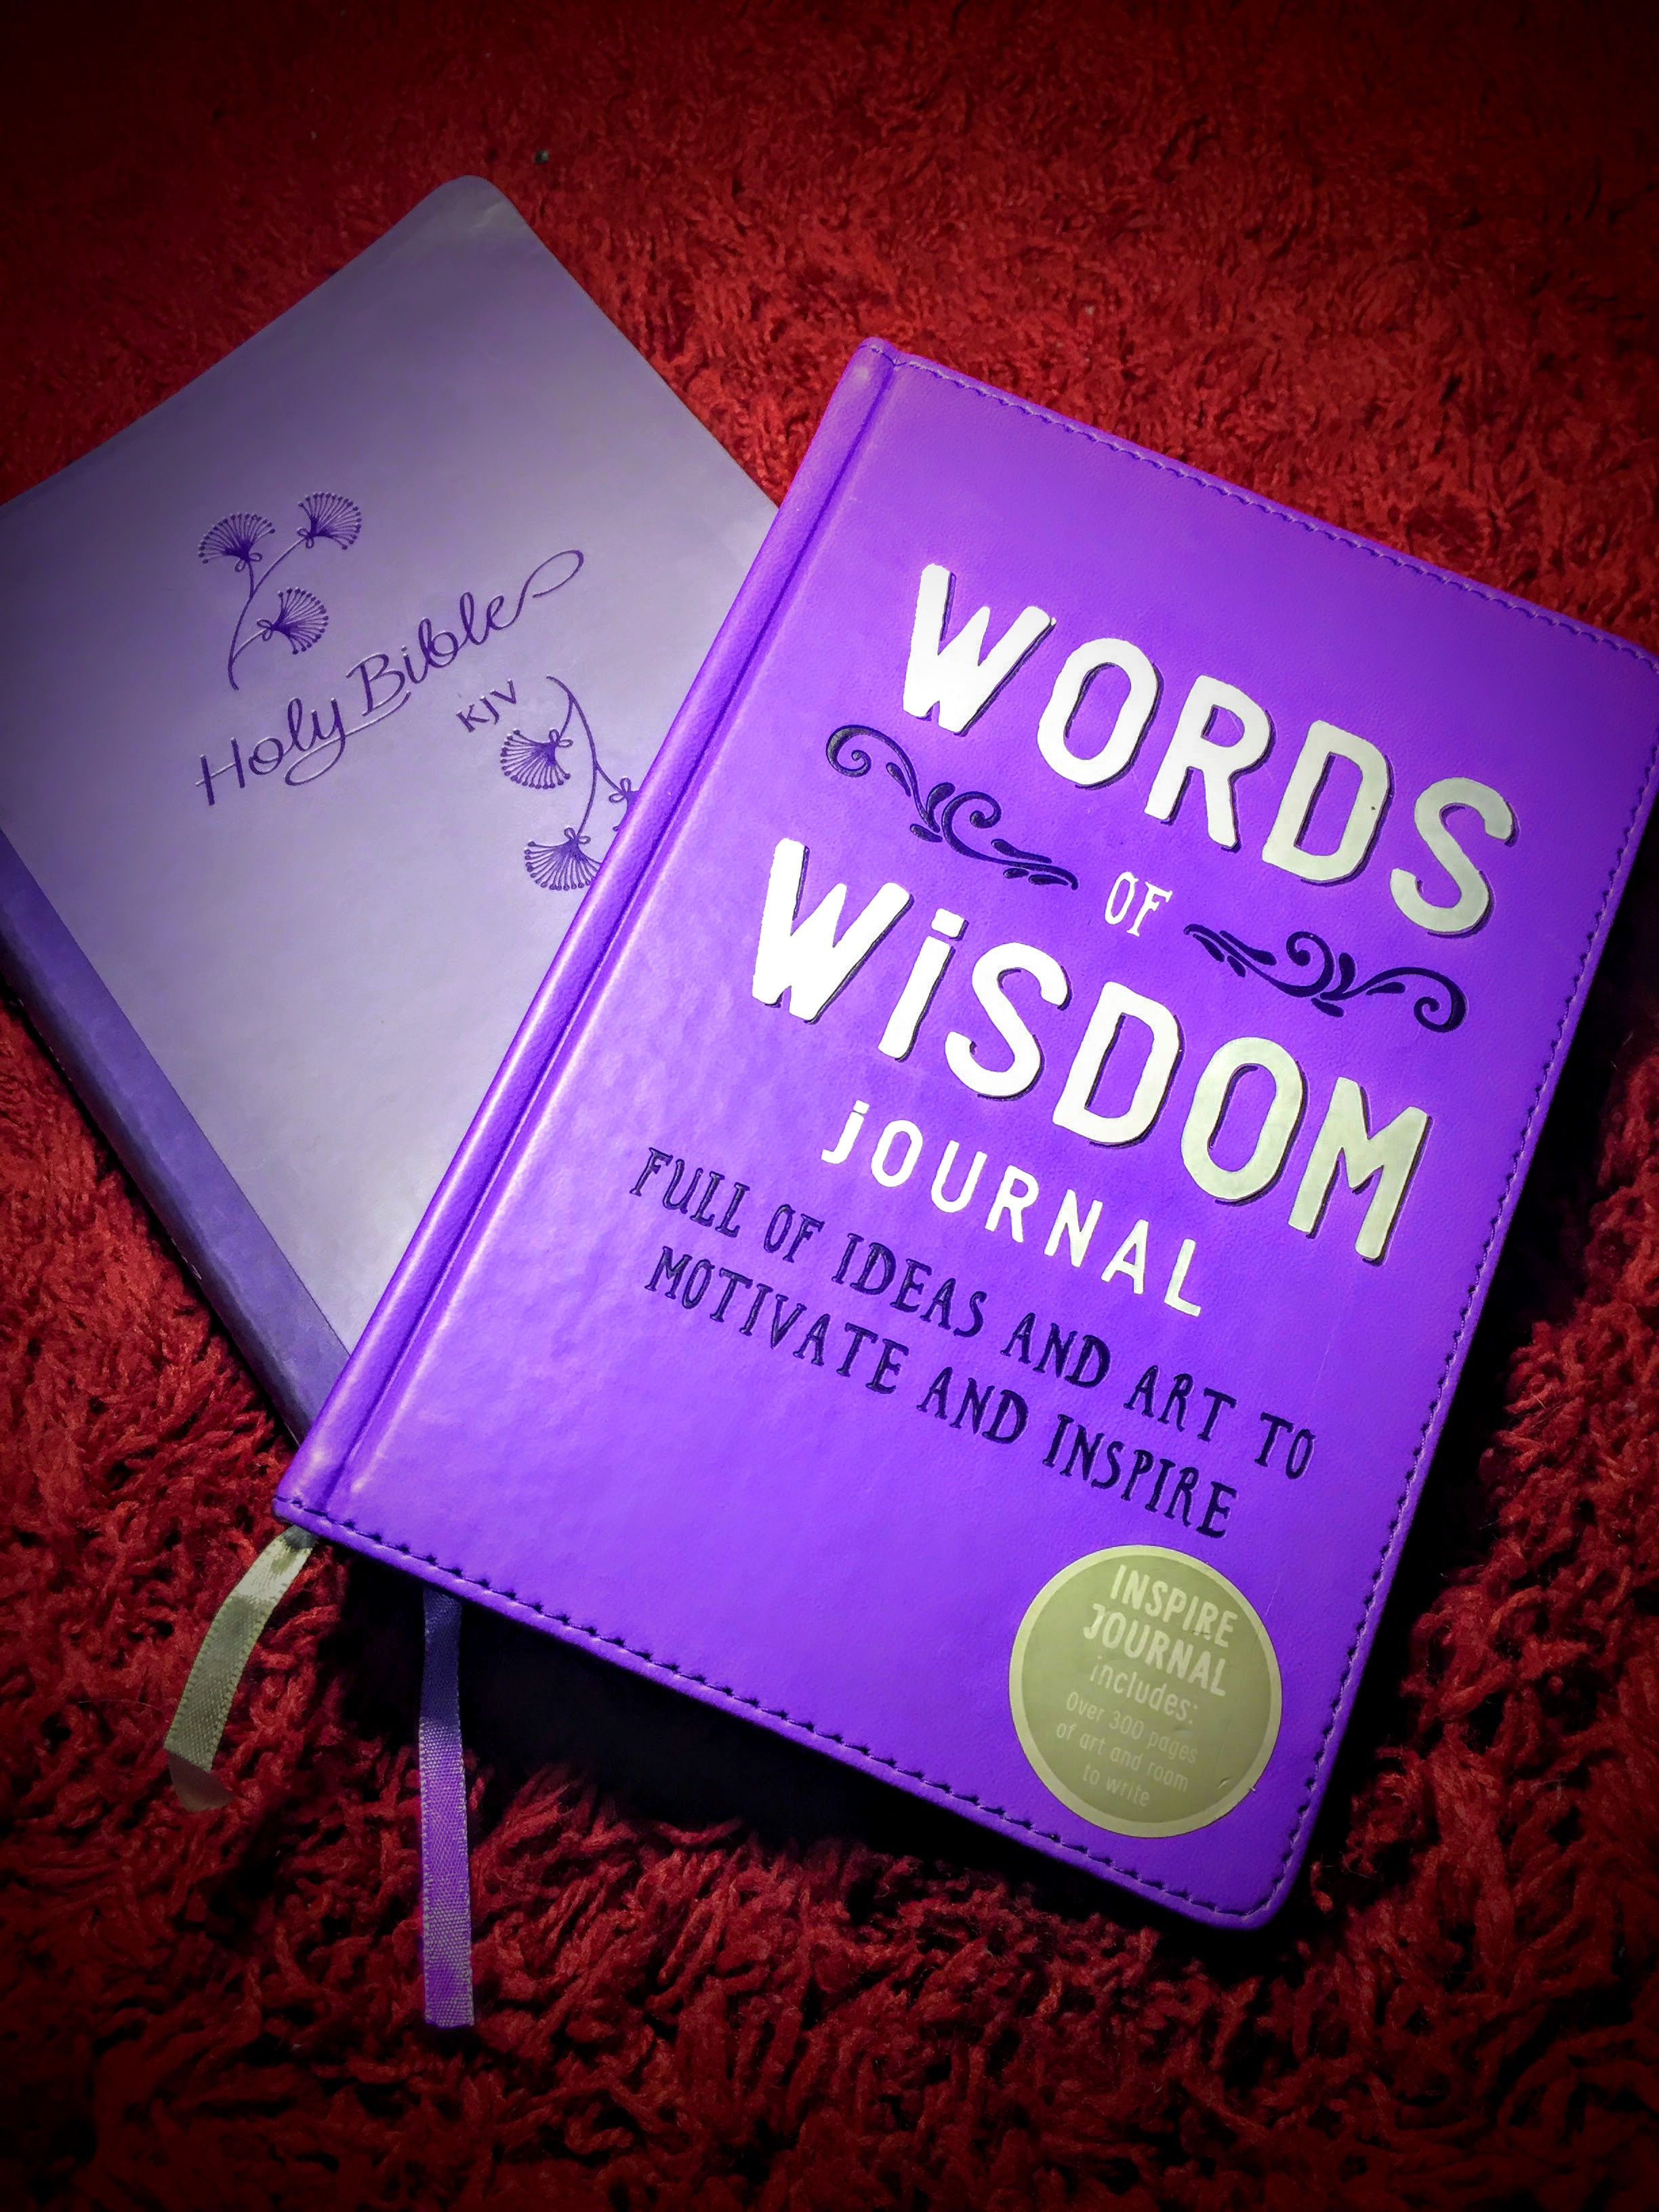 Holy Bible
KJV
WORDS
OF
WiSDOM
jOURNAL
FULL OF IDEAS AND ART TO
MOTIVATE AND INSPIRE
INSPIRE
JOURNAL
includes:
Over 300 pages
of art and room
to write